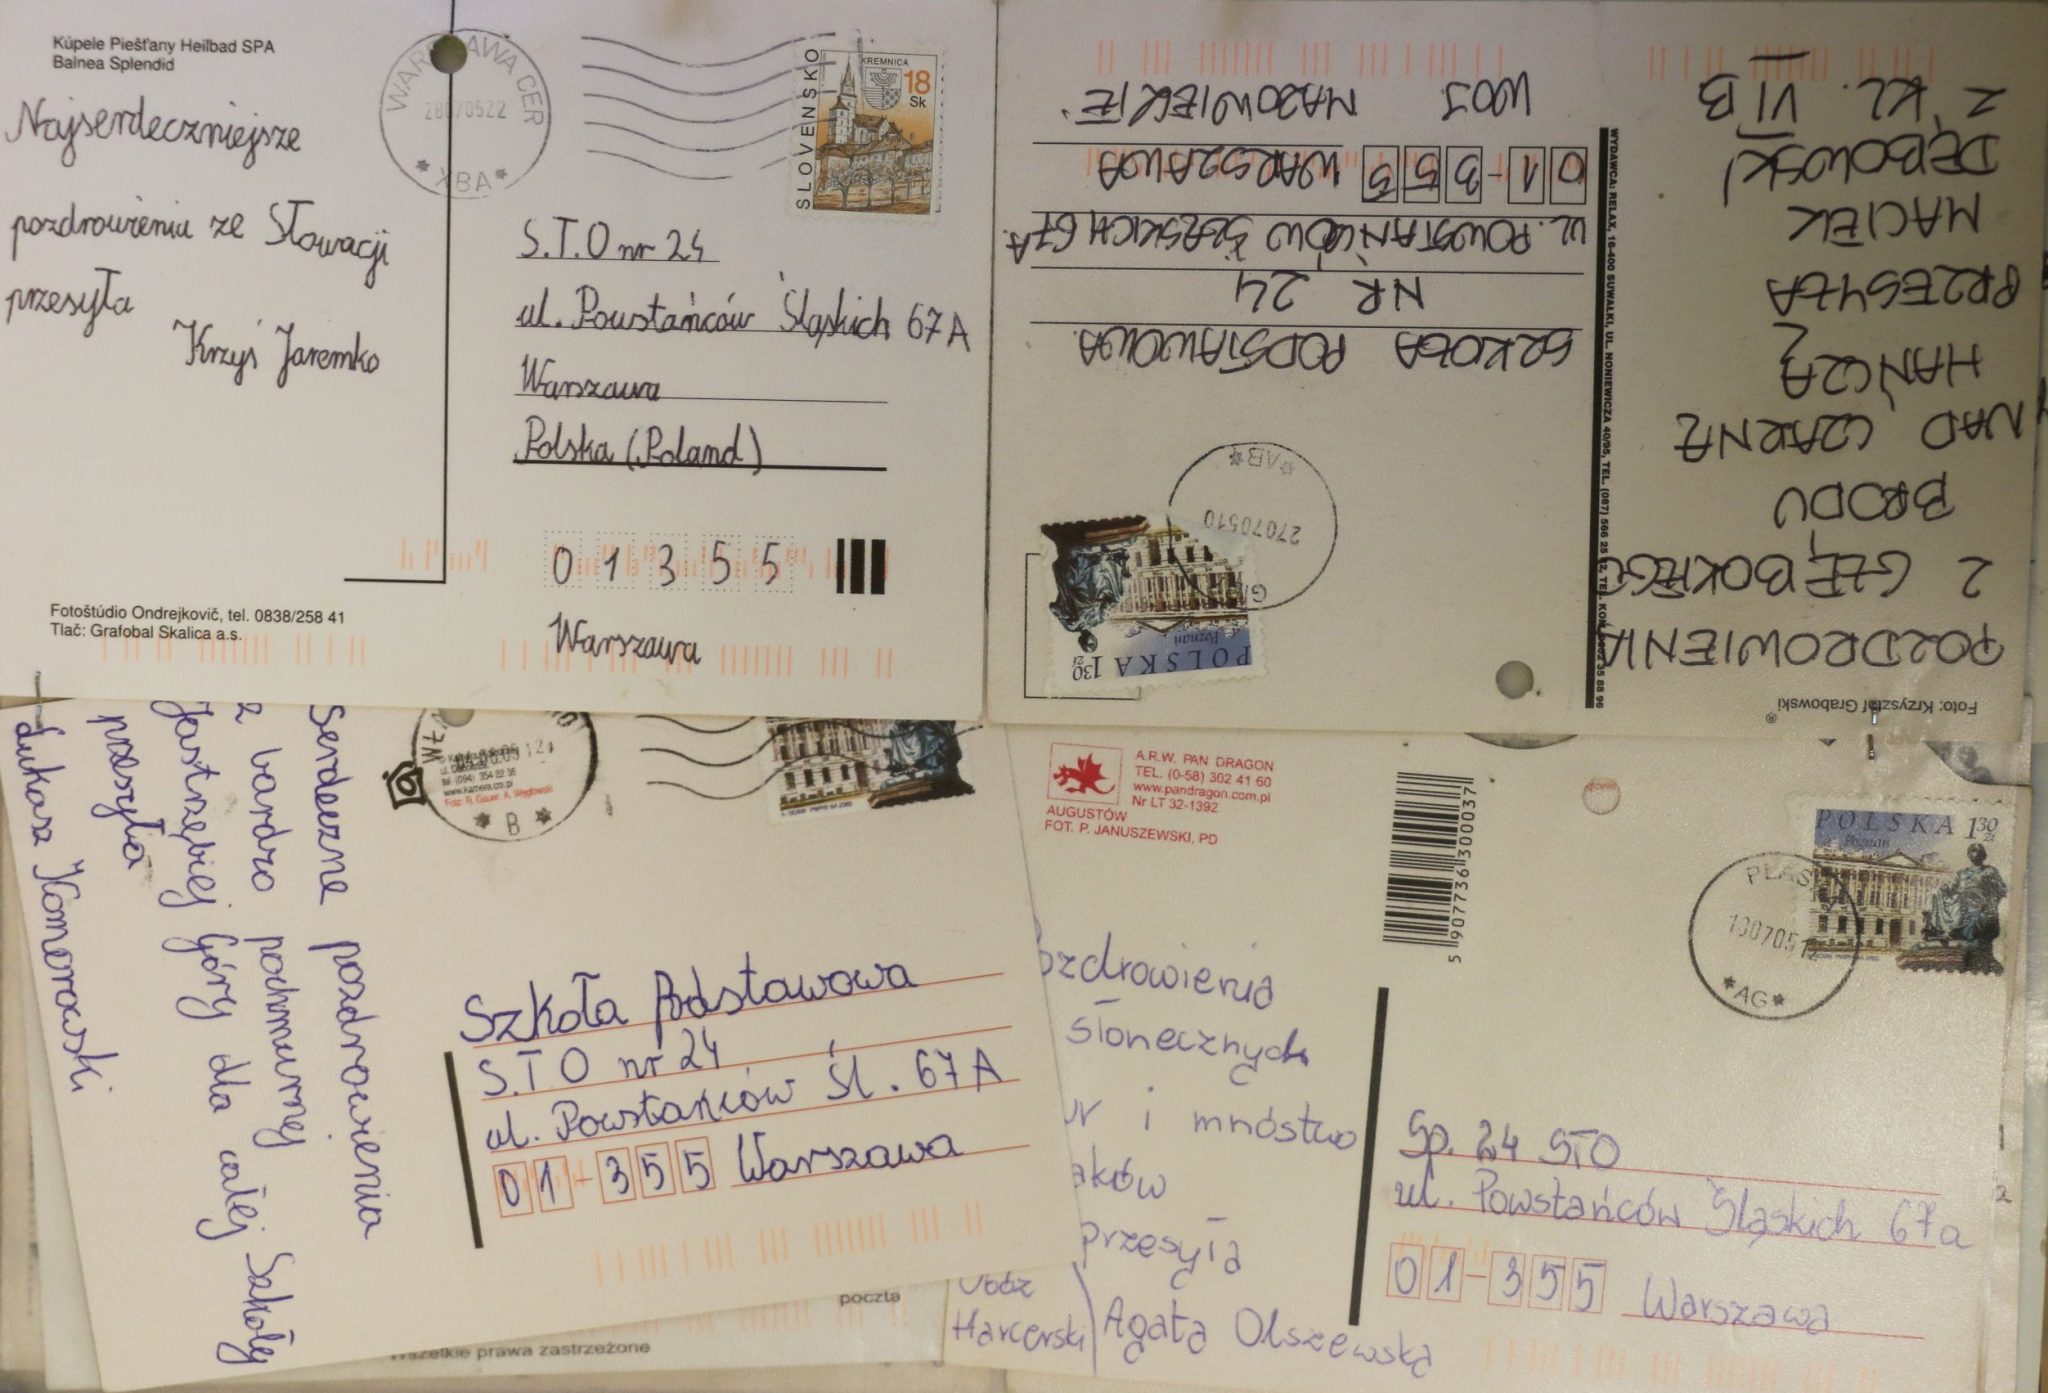 Kúpele Piešťany Heilbad SPA
Balnea Splendid
Najserdeczniejsze
pozdrowienia ze Słowacji
przesyła
Krzyś Jaremko
Fotoštúdio Ondrejkovič, tel. 0838/258 41
Tlač: Grafobal Skalica a.s.
WARSZAWA CER
28070522
* XBA *
SLOVENSKO
KREMNICA
18
Sk
S.T.O nr 24
ul. Powstańców Śląskich 67A
Warszawa
Polska (Poland)
01355
Warszawa
Foto: Krzysztof Grabowski
®
POZDROWIENIA
Z GŁĘBOKIEGO
BRODU
NAD CZARNĄ
HAŃCZĄ
PRZESYŁA
MACIEK
DĘBOWSKI
Z KL. VI B
WYDAWCA: RELAX, 16-400 SUWAŁKI, UL. NONIEWICZA 40/95, TEL. (087) 566 25
POLSKA 130 zł
Poznań
27070510
*AB*
SZKOŁA PODSTAWOWA
NR 24
UL. POWSTAŃCÓW ŚLĄSKICH 67A.
01-355 WARSZAWA
WOJ. MAZOWIECKIE
Serdeczne pozdrowienia
z bardzo pochmurnej
Jastrzębiej Góry dla całej Szkoły
przesyła
Łukasz Komorowski
tel. (094) 354 22 36
www.kamera.cis.pl
Fot: R. Gauer, A. Węglowski
* B *
Szkoła Podstawowa
S.T.O nr 24
ul. Powstańców Śl. 67A
01-355 Warszawa
poczta
Wszelkie prawa zastrzeżone
A.R.W. PAN DRAGON
TEL. (0-58) 302 41 60
www.pandragon.com.pl
Nr LT 32-1392
AUGUSTÓW
FOT. P. JANUSZEWSKI, PD
5 907736 300037
ozdrowienia
słonecznych
i mnóstwo
aków
przesyła
Obóz
Harcerski
Agata Olszewska
POLSKA 130 zł
Poznań
PŁAS
*AG*
Sp. 24 STO
ul. Powstańców Śląskich 67a
01-355 Warszawa